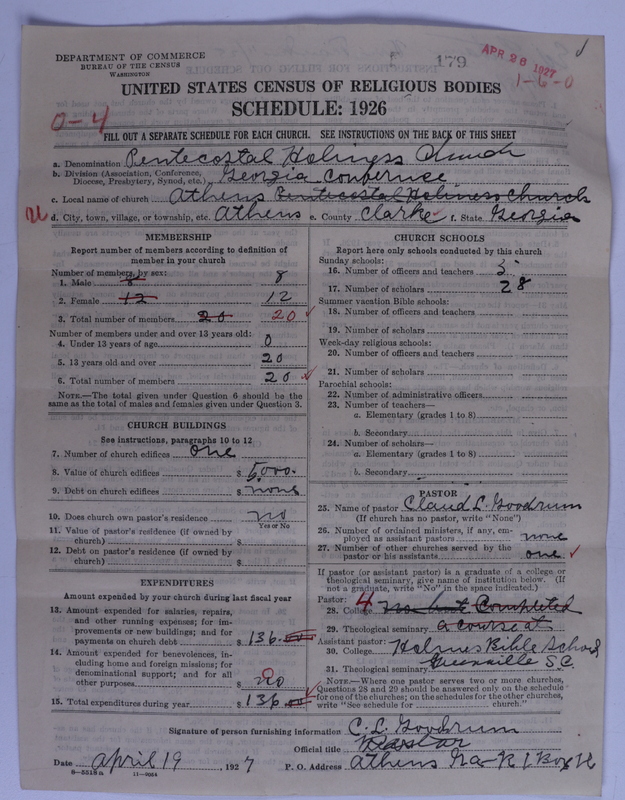 179
APR 28 1927
1-6-0
DEPARTMENT OF COMMERCE
BUREAU OF THE CENSUS
WASHINGTON
UNITED STATES CENSUS OF RELIGIOUS BODIES
SCHEDULE: 1926
0-4
FILL OUT A SEPARATE SCHEDULE FOR EACH CHURCH. SEE INSTRUCTIONS ON THE BACK OF THIS SHEET
a. Denomination Pentecostal Holiness Church
b. Division (Association, Conference, Diocese, Presbytery, Synod, etc.) Georgia Confernce
c. Local name of church Athens Pentecostal Holiness Church
d. City, town, village, or township, etc. Athens e. County Clarke f. State Georgia
MEMBERSHIP
Report number of members according to definition of
member in your church
Number of members, by sex:
1. Male 8 8
2. Female 12 12
3. Total number of members 20 20
Number of members under and over 13 years old:
4. Under 13 years of age 0
5. 13 years old and over 20
6. Total number of members 20
NOTE.—The total given under Question 6 should be the
same as the total of males and females given under Question 3.
CHURCH BUILDINGS
See instructions, paragraphs 10 to 12
7. Number of church edifices one
8. Value of church edifices $ 5,000.
9. Debt on church edifices $ none
10. Does church own pastor's residence no
Yes or No
11. Value of pastor's residence (if owned by
church) $
12. Debt on pastor's residence (if owned by
church) $
EXPENDITURES
Amount expended by your church during last fiscal year
13. Amount expended for salaries, repairs,
and other running expenses; for im-
provements or new buildings; and for
payments on church debt $ 136.00
14. Amount expended for benevolences, in-
cluding home and foreign missions; for
denominational support; and for all
other purposes $
15. Total expenditures during year $ 136.00
CHURCH SCHOOLS
Report here only schools conducted by this church
Sunday schools:
16. Number of officers and teachers 5
17. Number of scholars 28
Summer vacation Bible schools:
18. Number of officers and teachers
19. Number of scholars
Week-day religious schools:
20. Number of officers and teachers
21. Number of scholars
Parochial schools:
22. Number of administrative officers
23. Number of teachers—
a. Elementary (grades 1 to 8)
b. Secondary
24. Number of scholars—
a. Elementary (grades 1 to 8)
b. Secondary
PASTOR
25. Name of pastor Claud L. Goodrum
(If church has no pastor, write "None")
26. Number of ordained ministers, if any, em-
ployed as assistant pastors none
27. Number of other churches served by the
pastor or his assistants one
If pastor (or assistant pastor) is a graduate of a college or
theological seminary, give name of institution below. (If
not a graduate, write "No" in the space indicated.)
Pastor: 4
28. College no but Completed
29. Theological seminary a course at
Assistant pastor:
30. College Holmes Bible School
31. Theological seminary Greenville S.C.
NOTE.—Where one pastor serves two or more churches,
Questions 28 and 29 should be answered only on the schedule
for one of the churches; on the schedules for the other churches,
write "See schedule for church."
Signature of person furnishing information C. L. Goodrum
Official title Pastor
Date April 19, 1927 P. O. Address Athens Ga - R 1 Box
8-5518a 11-9054